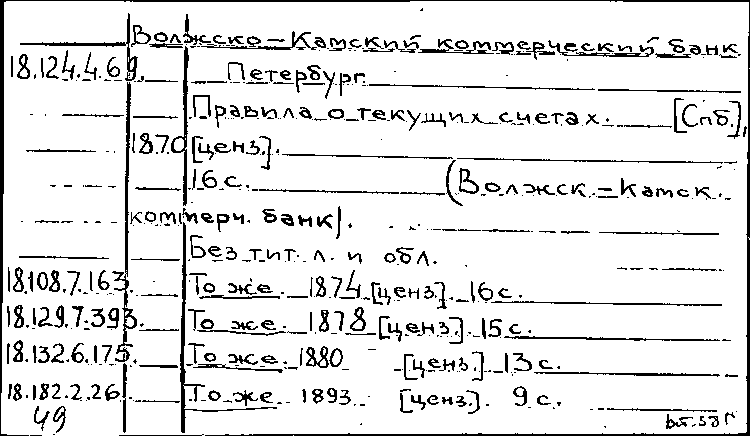 Волжско-Камский коммерческий банк
18.124.4.69. Петербург
Правила о текущих счетах. [Спб.],
1870 [ценз].
16 с. (Волжск.-Камск.
коммерч. банк).
Без тит. л. и обл.
18.108.7.163. То же. 1874 [ценз]. 16 с.
18.129.7.393. То же. 1878 [ценз]. 15 с.
18.132.6.175. То же. 1880 [ценз] 13 с.
18.182.2.26. То же 1893 [ценз]. 9 с.
49